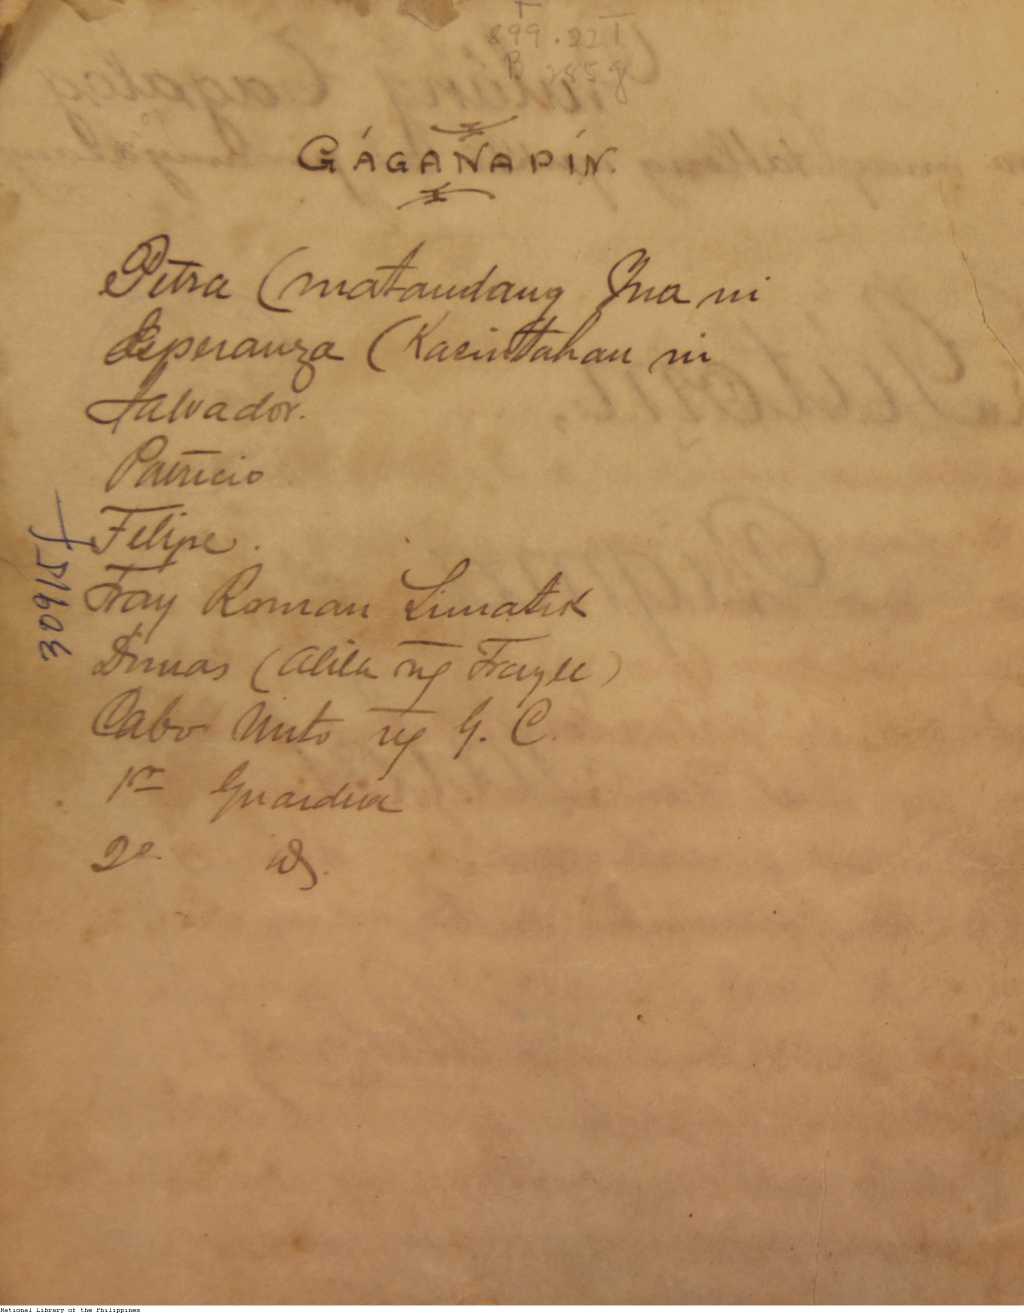 899.22T
B 285g
GÁGANAPÍN.
Petra (matandang Ina ni
Esperanza (Kasintahan ni
Salvador.
Patricio
Felipe.
Fray Roman Limatik
Dimas (alila ng Frayle)
Cabo Nieto ng G. C.
1er Guardia
2o id.
30915
National Library of the Philippines